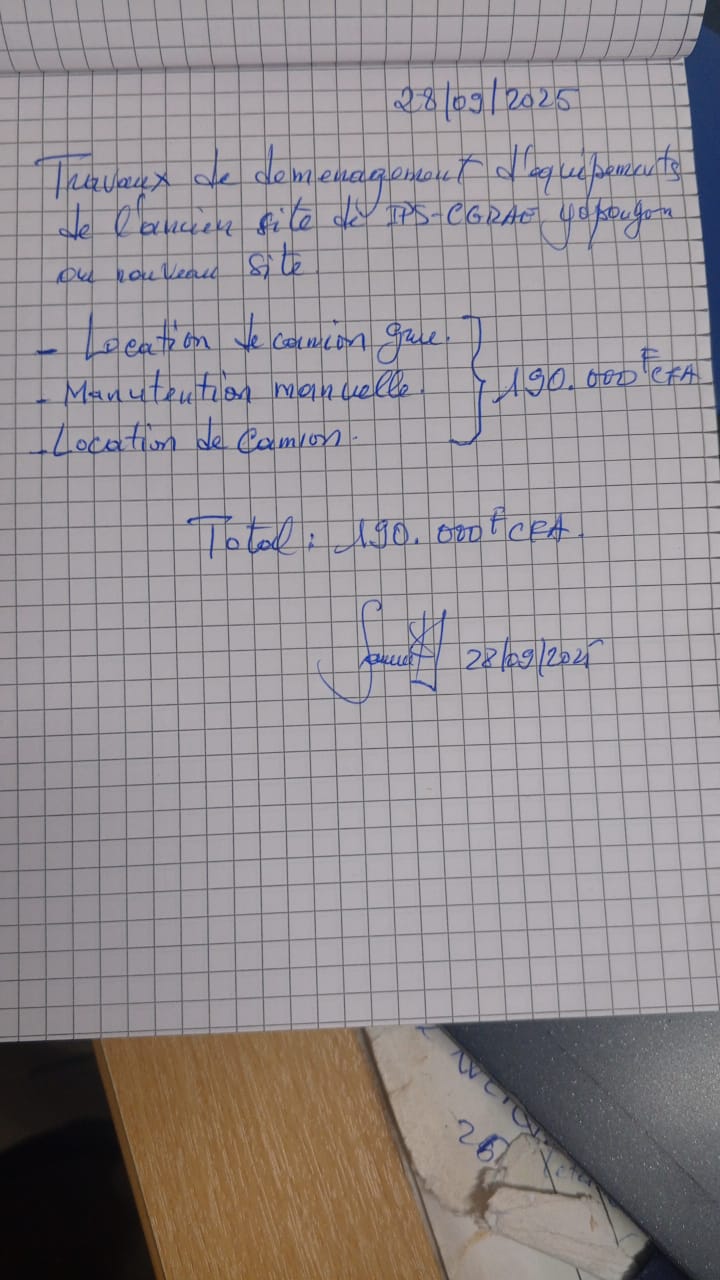 28/09/2025
Travaux de demenagement d'equipements
de l'ancien site de IPS-CGRAE yopougon
au nouveau site
- Location de camion grue.
- Manutention manuelle.
190.000 F CFA
- Location de Camion.
Total : 190.000 F CFA.
28/09/2025
26